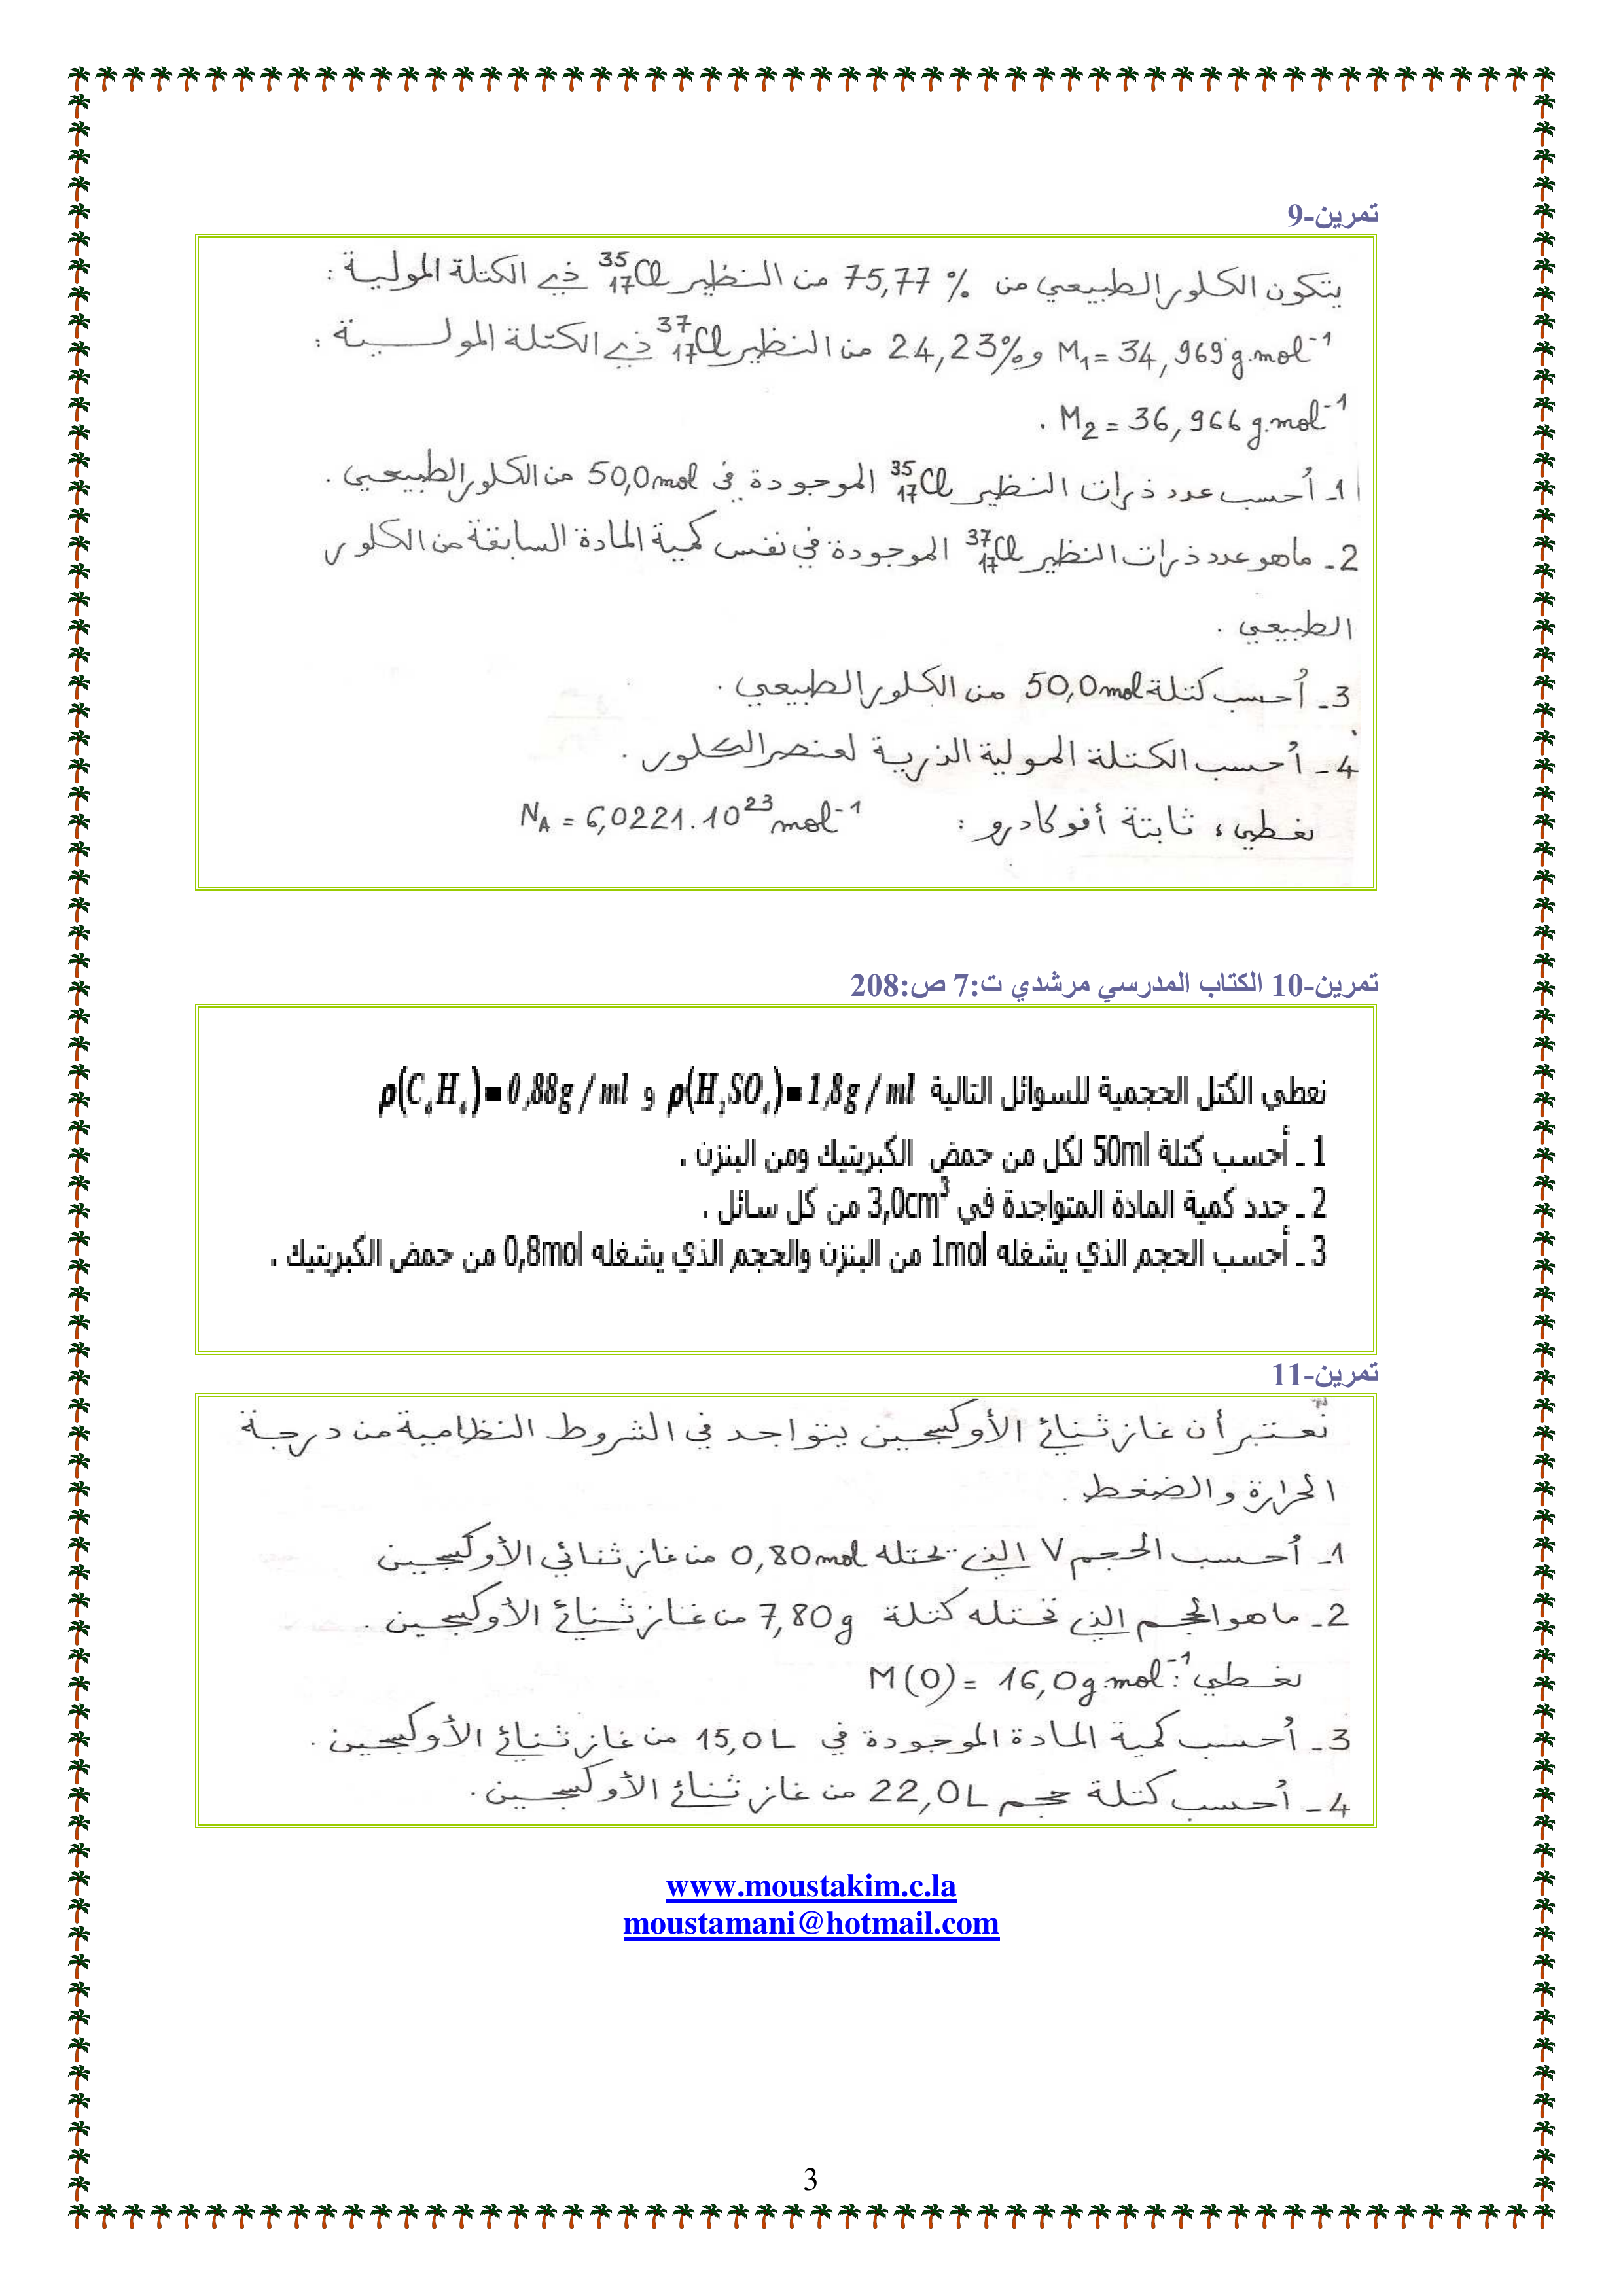 تمرين-9
يتكون الكلور الطبيعي من % 75,77 من النظير ³⁵₁₇Cl ذي الكتلة المولية :
M₁ = 34,969 g.mol⁻¹ و 24,23% من النظير ³⁷₁₇Cl ذي الكتلة المولية :
M₂ = 36,966 g.mol⁻¹ .
1ـ أحسب عدد ذرات النظير ³⁵₁₇Cl الموجودة في 50,0mol من الكلور الطبيعي .
2ـ ماهو عدد ذرات النظير ³⁷₁₇Cl الموجودة في نفس كمية المادة السابقة من الكلور
الطبيعي .
3ـ أحسب كتلة 50,0mol من الكلور الطبيعي .
4ـ أحسب الكتلة المولية الذرية لعنصر الكلور .
نعطي ، ثابتة أفوكادرو : N_A = 6,0221.10²³ mol⁻¹
تمرين-10 الكتاب المدرسي مرشدي ت:7 ص:208
نعطي الكتل الحجمية للسوائل التالية ρ(H₂SO₄)=1,8g/ml و ρ(C₆H₆)=0,88g/ml
1 ـ أحسب كتلة 50ml لكل من حمض الكبريتيك ومن البنزن .
2 ـ حدد كمية المادة المتواجدة في 3,0cm³ من كل سائل .
3 ـ أحسب الحجم الذي يشغله 1mol من البنزن والحجم الذي يشغله 0,8mol من حمض الكبريتيك .
تمرين-11
نعتبر أن غاز ثنائي الأوكسجين يتواجد في الشروط النظامية من درجة
الحرارة والضغط .
1ـ أحسب الحجم V الذي تحتله 0,80mol من غاز ثنائي الأوكسجين
2ـ ماهو الحجم الذي تحتله كتلة 7,80g من غاز ثنائي الأوكسجين .
نعطي : M(O) = 16,0g.mol⁻¹
3ـ أحسب كمية المادة الموجودة في 15,0L من غاز ثنائي الأوكسجين .
4ـ أحسب كتلة حجم 22,0L من غاز ثنائي الأوكسجين .
www.moustakim.c.la
moustamani@hotmail.com
3